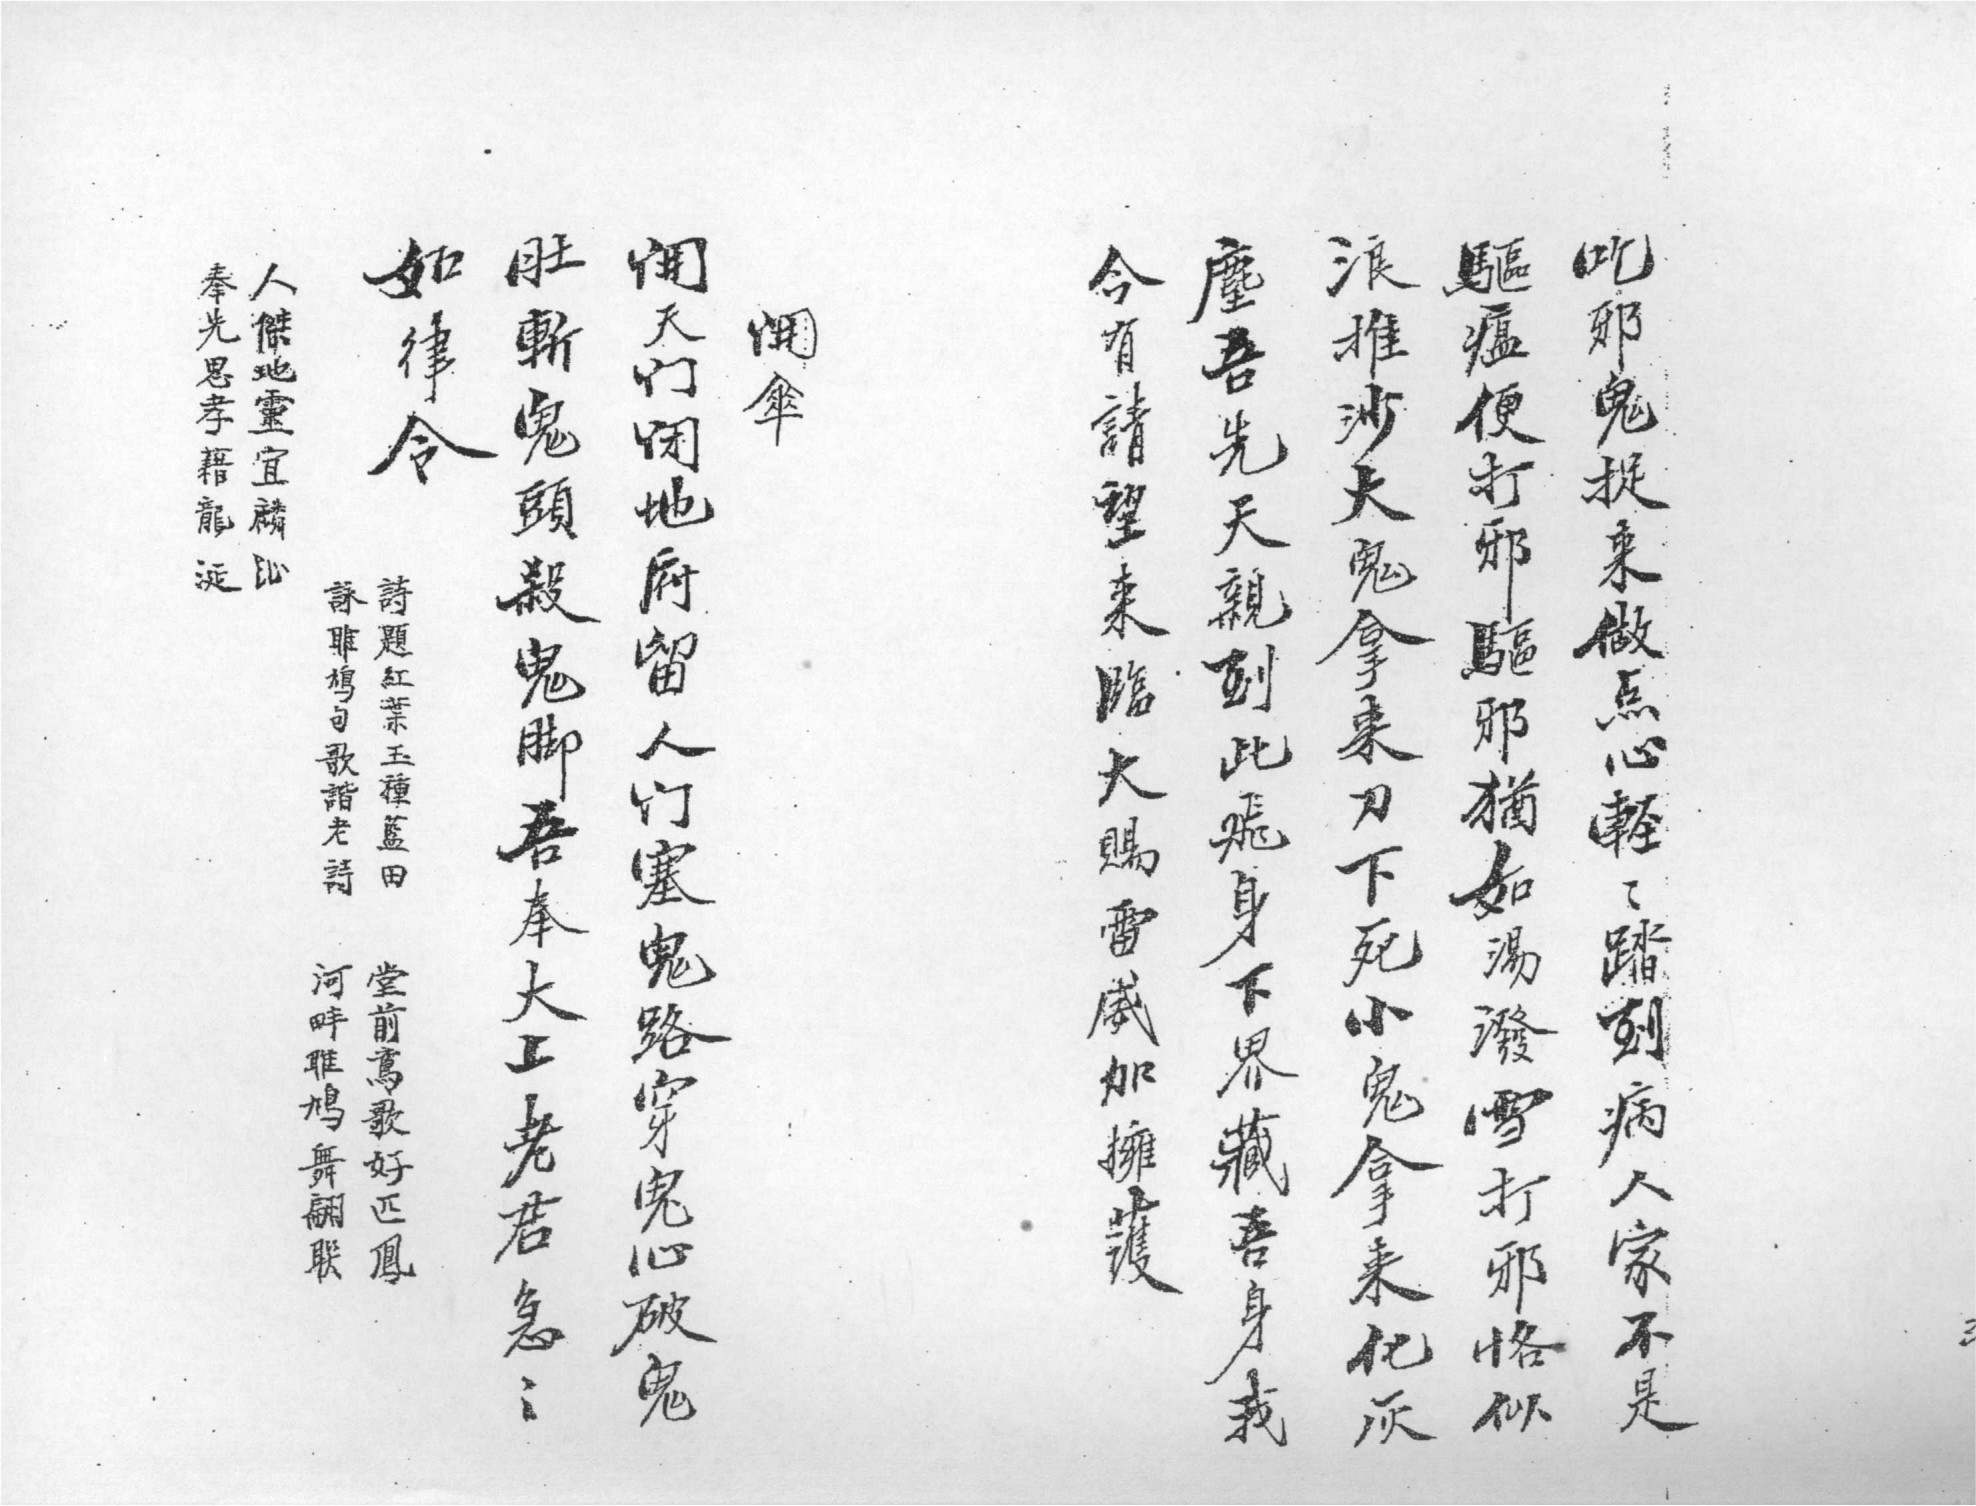 吃邪鬼捉来做点心輕〻踏到病人家不是
驅瘟便打邪驅邪猶如湯潑雪打邪恪似
浪推沙大鬼拿来刀下死小鬼拿来化灰
塵吾先天親到此飛身下界藏吾身我
今有請望来臨大賜雷威加擁護
開傘
開天门闭地府留人门塞鬼路穿鬼心破鬼
肚斬鬼頭殺鬼脚吾奉大上老君急〻
如律令
詩題紅葉玉種藍田
詠雎鳩句歌諧老詩
堂前鳶歌好匹鳳
河畔雎鳩舞翩联
人傑地靈宜麟趾
奉先思孝藉龍涎